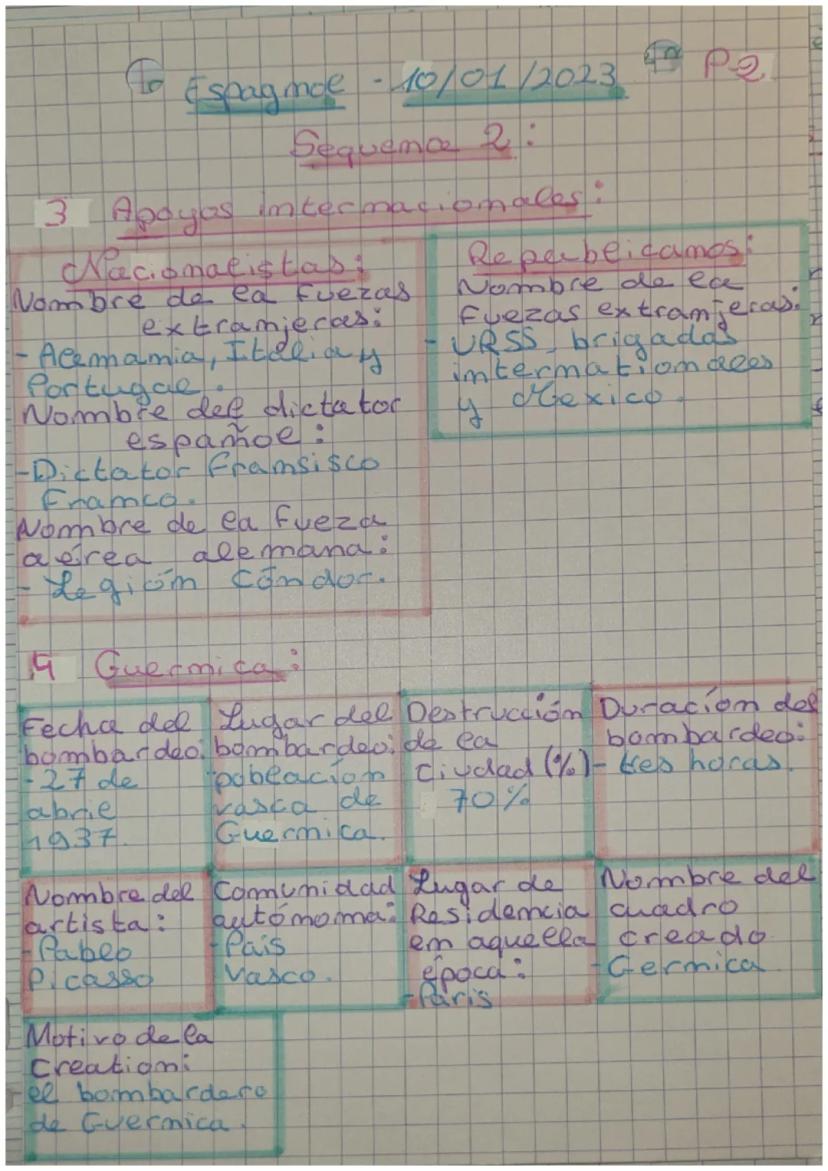 Espagnol - 10/01/2023 P.2
Sequence 2:
3 Apoyos internacionales:
Nacionalistas:
Nombre de la fuezas
extranjeras:
- Alemania, Italia y
Portugal.
Nombre del dictator
español:
- Dictator Fransisco
Franco.
Nombre de la fueza
aérea alemana:
- Legión Cóndor.
Republicanos:
Nombre de la
fuezas extranjeras:
- URSS, brigadas
internationales
y Mexico.
4 Guernica:
Fecha del
bombardeo:
- 27 de
abril
1937.
Lugar del
bombardeo:
población
vasca de
Guernica.
Destrucción
de la
Ciudad (%)
70%
Duración del
bombardeo:
- tres horas.
Nombre del
artista:
- Pablo
Picasso
Comunidad
autónoma:
- País
Vasco.
Lugar de
Residencia
en aquella
época:
- Paris
Nombre del
cuadro
creado
- Gernica
Motivo de la
creation:
el bombardero
de Guernica.